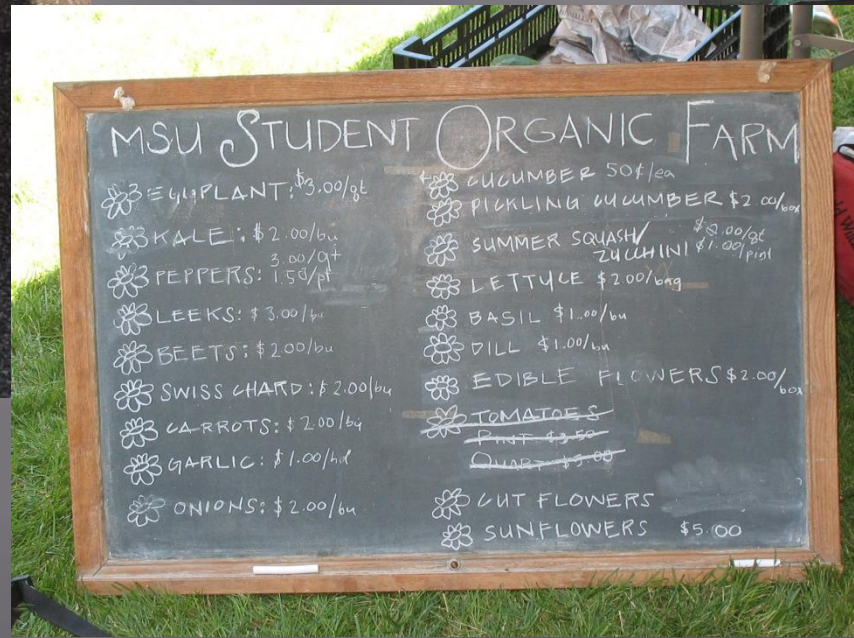 MSU STUDENT ORGANIC FARM
EGGPLANT: $3.00/qt
KALE: $2.00/bu
3.00/qt
PEPPERS: 1.50/pt
LEEKS: $3.00/bu
BEETS: $2.00/bu
SWISS CHARD: $2.00/bu
CARROTS: $2.00/bu
GARLIC: $1.00/hd
ONIONS: $2.00/bu
CUCUMBER 50¢/ea
PICKLING CUCUMBER $2.00/box
SUMMER SQUASH/ $2.00/qt
ZUCCHINI $1.00/pint
LETTUCE $2.00/bag
BASIL $1.00/bu
DILL $1.00/bu
EDIBLE FLOWERS $2.00/box
TOMATOES
PINT $3.50
QUART $5.00
CUT FLOWERS
SUNFLOWERS $5.00